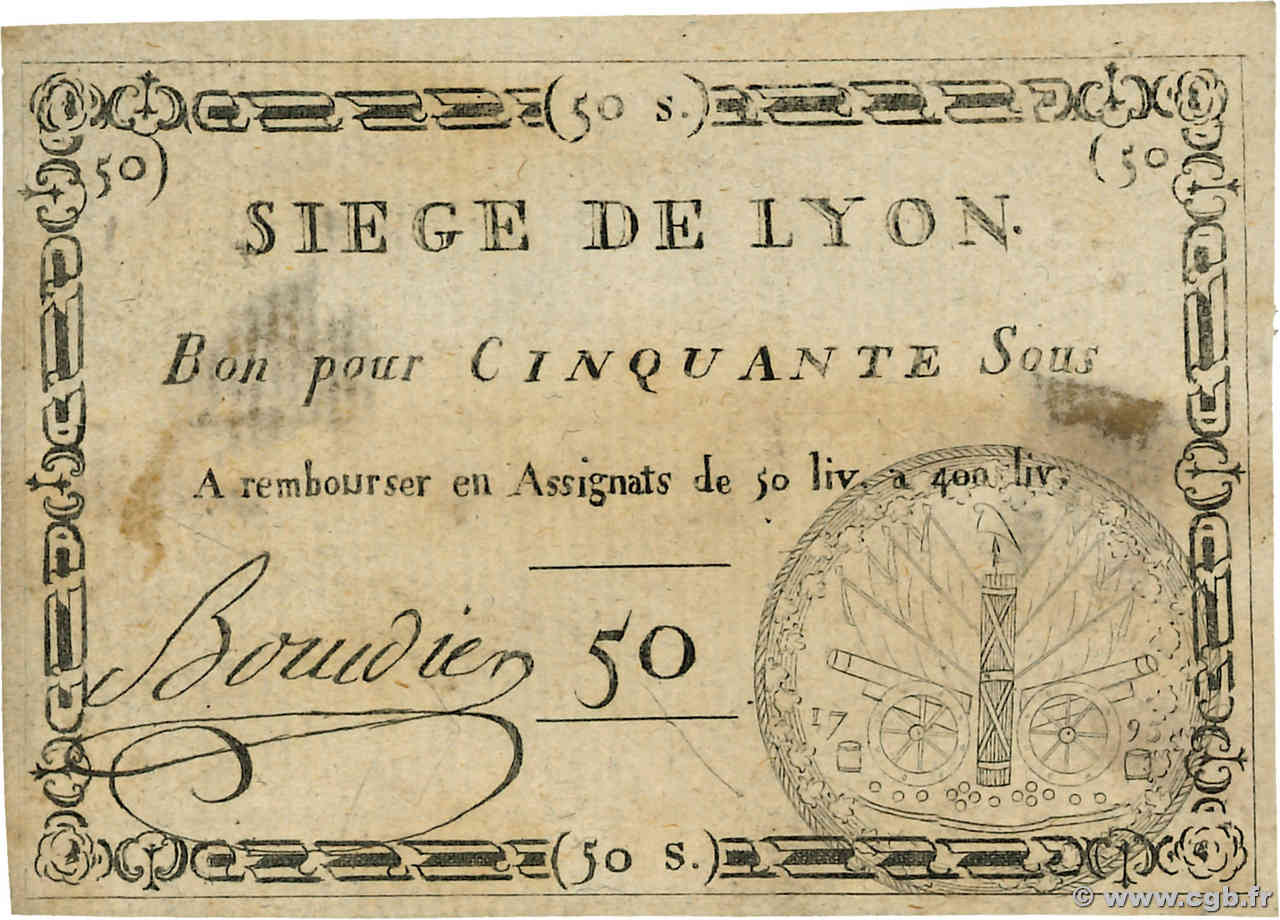 (50 s.)
50) (50
SIEGE DE LYON.
Bon pour CINQUANTE Sous
A rembourser en Assignats de 50 liv. a 400 liv.
Boudier 50
17 93
(50 s.)
© www.cgb.fr